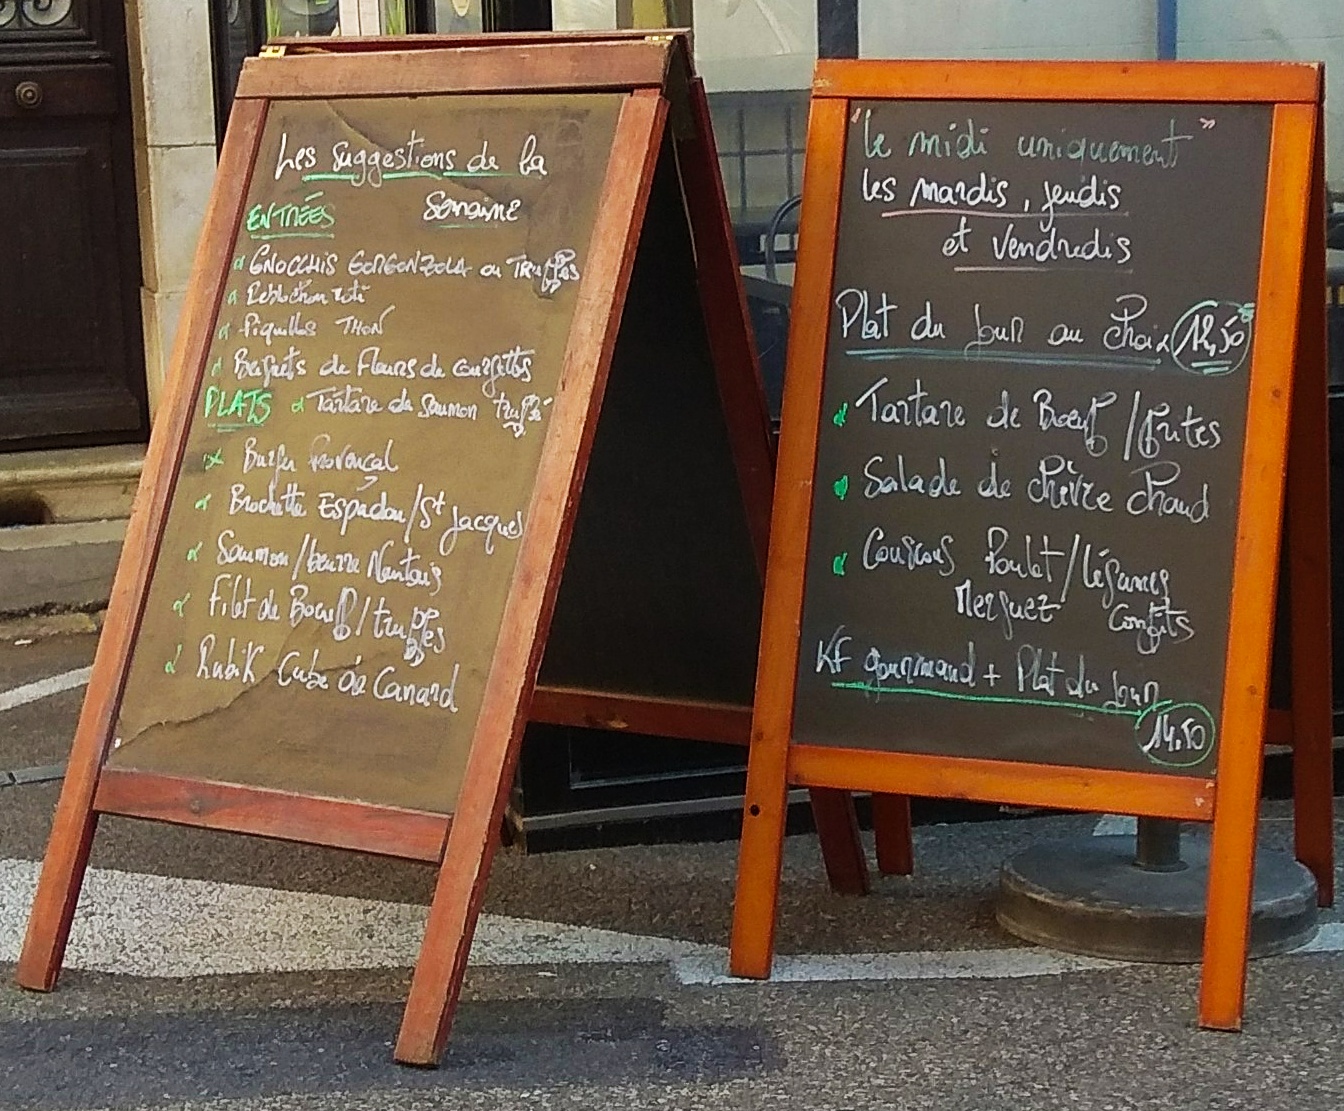 Les suggestions de la
Semaine
ENTRÉES
GNOCCHIS GORGONZOLA ou TRuffes
Reblochon roti
Piquillos THON
Beignets de Fleurs de courgettes
PLATS Tartare de Saumon truffé
Burger Provençal
Brochette Espadon/St Jacques
Saumon/beurre Nantais
Filet de Boeuf/truffes
Rubik Cube de Canard
"Le midi uniquement"
les mardis, jeudis
et Vendredis
Plat du Jour au Choix 12,50
Tartare de Boeuf/frites
Salade de Chèvre Chaud
Couscous Poulet/légumes
Merguez Confits
KF gourmand + Plat du Jour
14,50